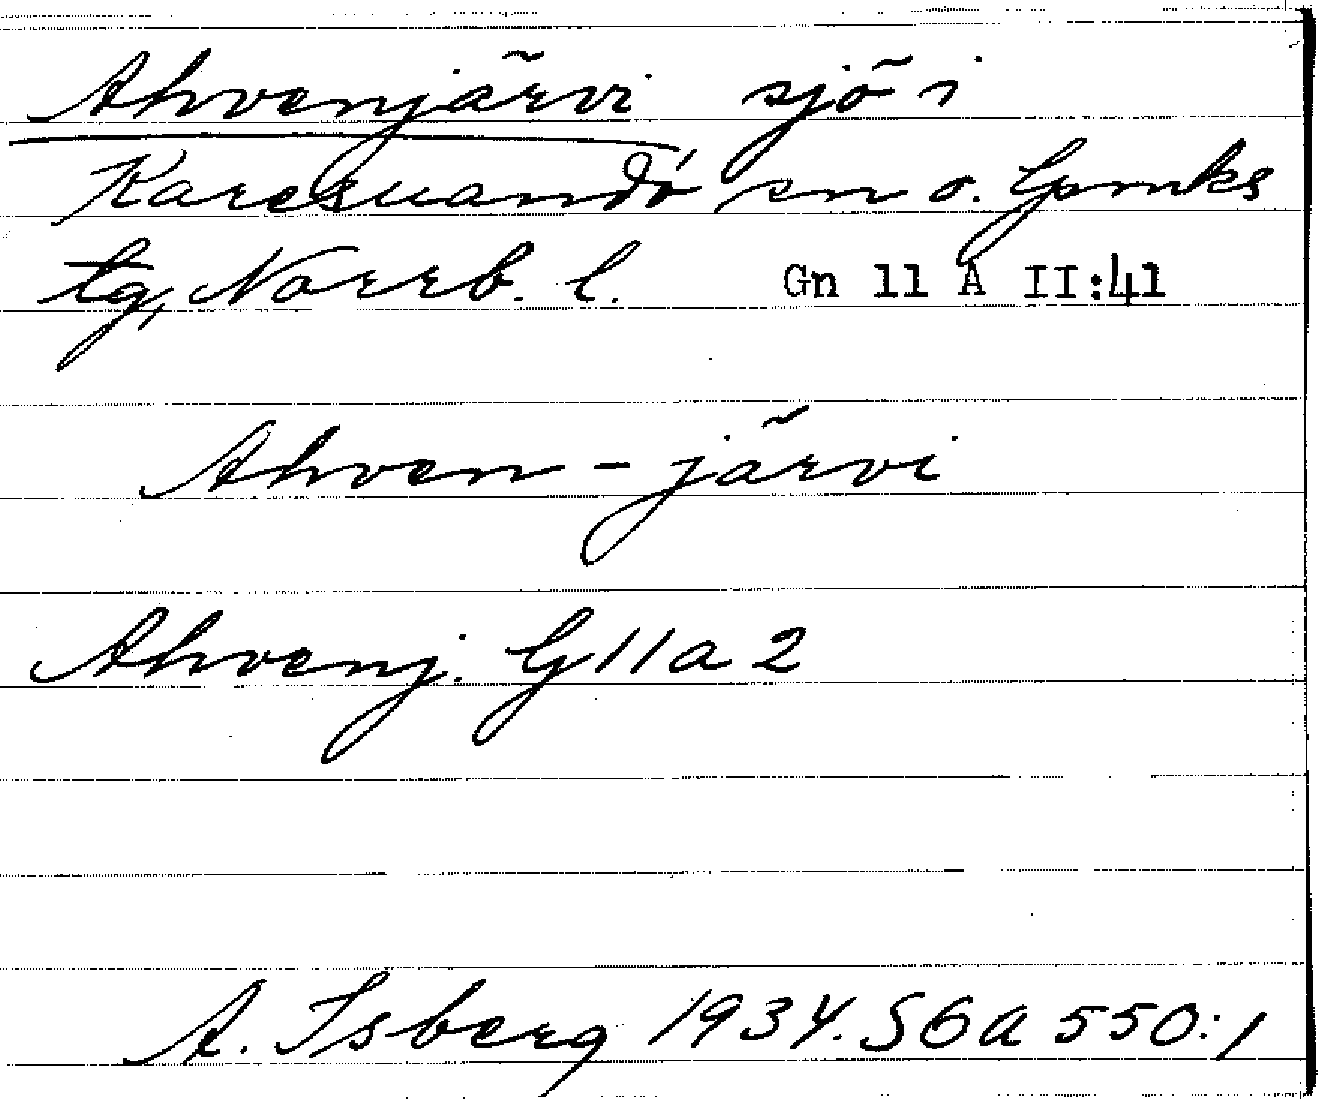 Ahvenjärvi sjö i
Karesuando sn o. Lpmks
tg, Norrb. l. Gn 11 A II:41
Ahven - järvi
Ahvenj. G 11 a 2
A. Isberg 1934. S6a 550:1